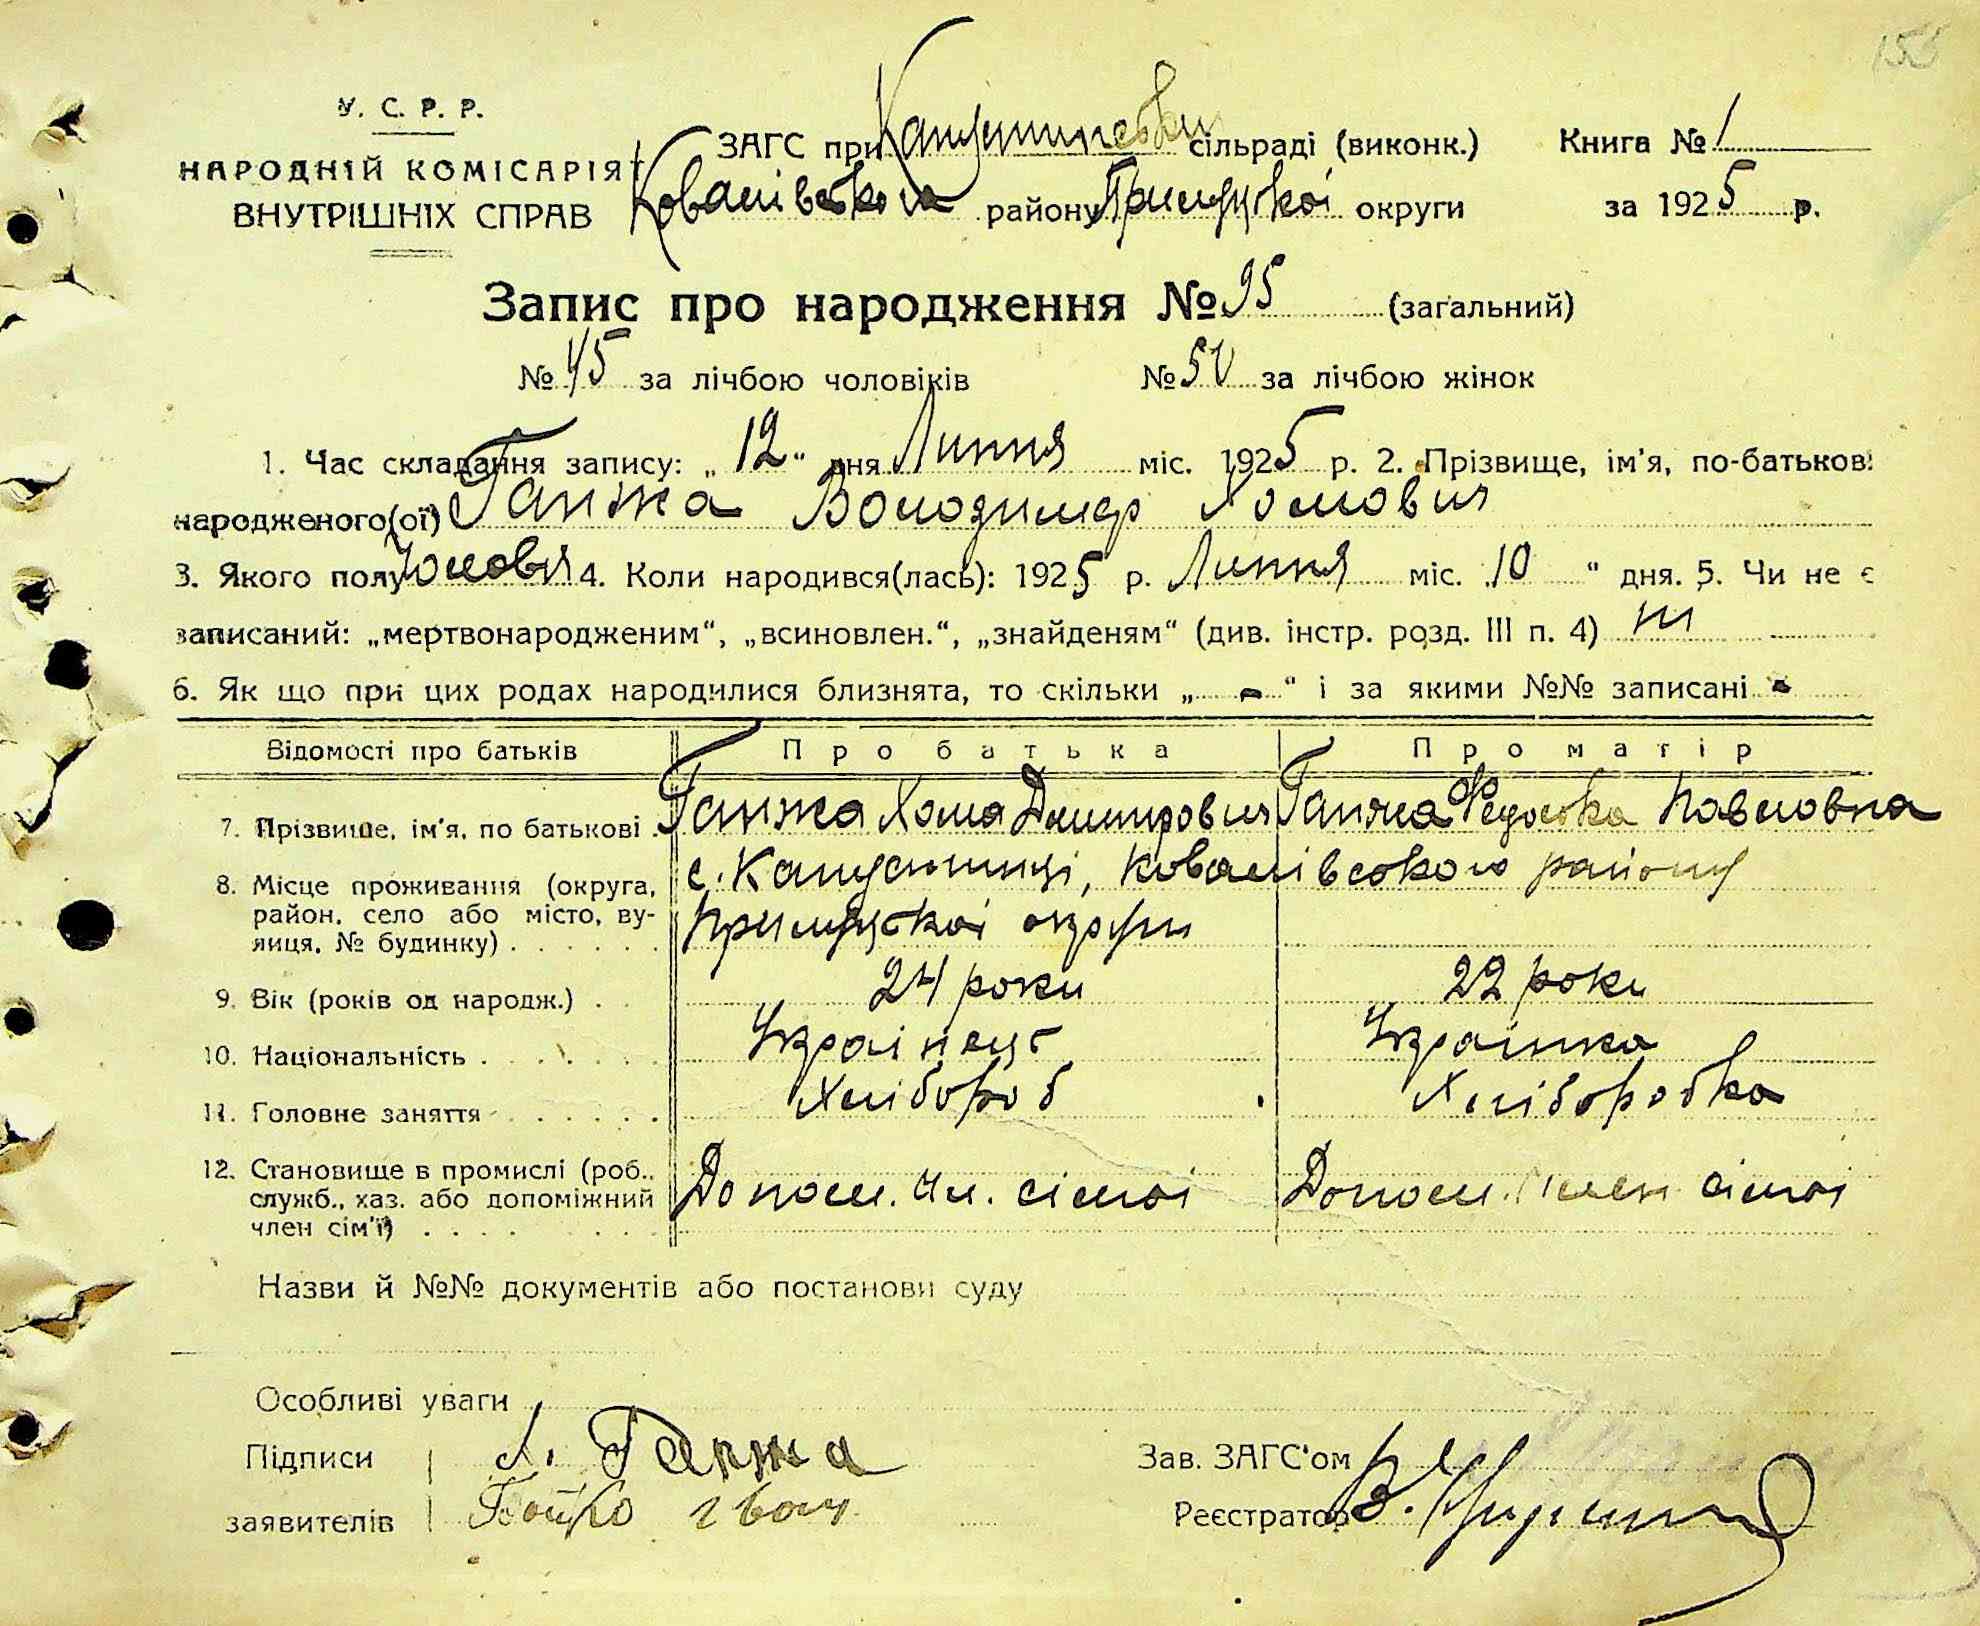 155
У. С. Р. Р.
НАРОДНІЙ КОМІСАРІЯТ
ВНУТРІШНІХ СПРАВ
ЗАГС при Капустинській сільраді (виконк.)
Ковалівського району Прилуцької округи
Книга № 1
за 1925 р.
Запис про народження № 95 (загальний)
№ 45 за лічбою чоловіків № 50 за лічбою жінок
1. Час складання запису: „12“ дня Липня міс. 1925 р. 2. Прізвище, ім'я, по-батькові
народженого(ої) Ганжа Володимер Хомович
3. Якого полу 4. Коли народився(лась): 1925 р. Липня міс. 10 “ дня. 5. Чи не є
записаний: „мертвонародженим“, „всиновлен.“, „знайденям“ (див. інстр. розд. III п. 4) ні
6. Як що при цих родах народилися близнята, то скільки „ - “ і за якими №№ записані -
Відомості про батьків Про батька Про матір
7. Прізвище, ім'я, по батькові . Ганжа Хома Дмитрович Ганжа Федоська Павловна
8. Місце проживання (округа, район, село або місто, вулиця, № будинку) . . . . . . с. Капустинці, Ковалівського району
Прилуцької округи
9. Вік (років од народж.) . . 24 роки 22 роки
10. Національність . . . . . . . Українець Українка
11. Головне заняття . . . . . . Хлібороб Хлібопобка
12. Становище в промислі (роб., служб., хаз. або допоміжний член сім'ї) . . . . Допом. чл. сімої Допом. член сімої
Назви й №№ документів або постанови суду
Особливі уваги
Підписи Х. Ганжа
заявителів Бойко
Зав. ЗАГС'ом
Реєстратор В.